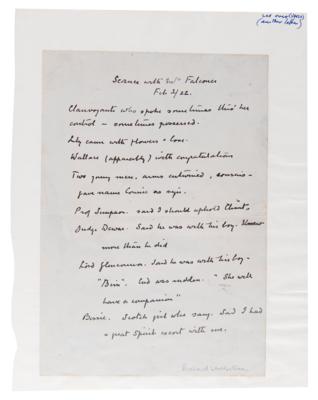 Seance with Mrs Falconer
Feb 3/22.
Clairvoyante who spoke sometimes thro' her
control – sometimes possessed.
Lily came with flowers & love.
Wallace (apparently) with congratulations
Two young men, arms entwined, cousins –
gave name Connie as sign.
Prof Simpson. said I should uphold Christ
Judge Dewar. Said he was with his boy. Knew
more than he did
Lord Glenconner. Said he was with his boy –
"Bim". End was sudden. "She will
have a companion"
Bessie. Scotch girl who sang. Said I had
a great Spirit escort with me.